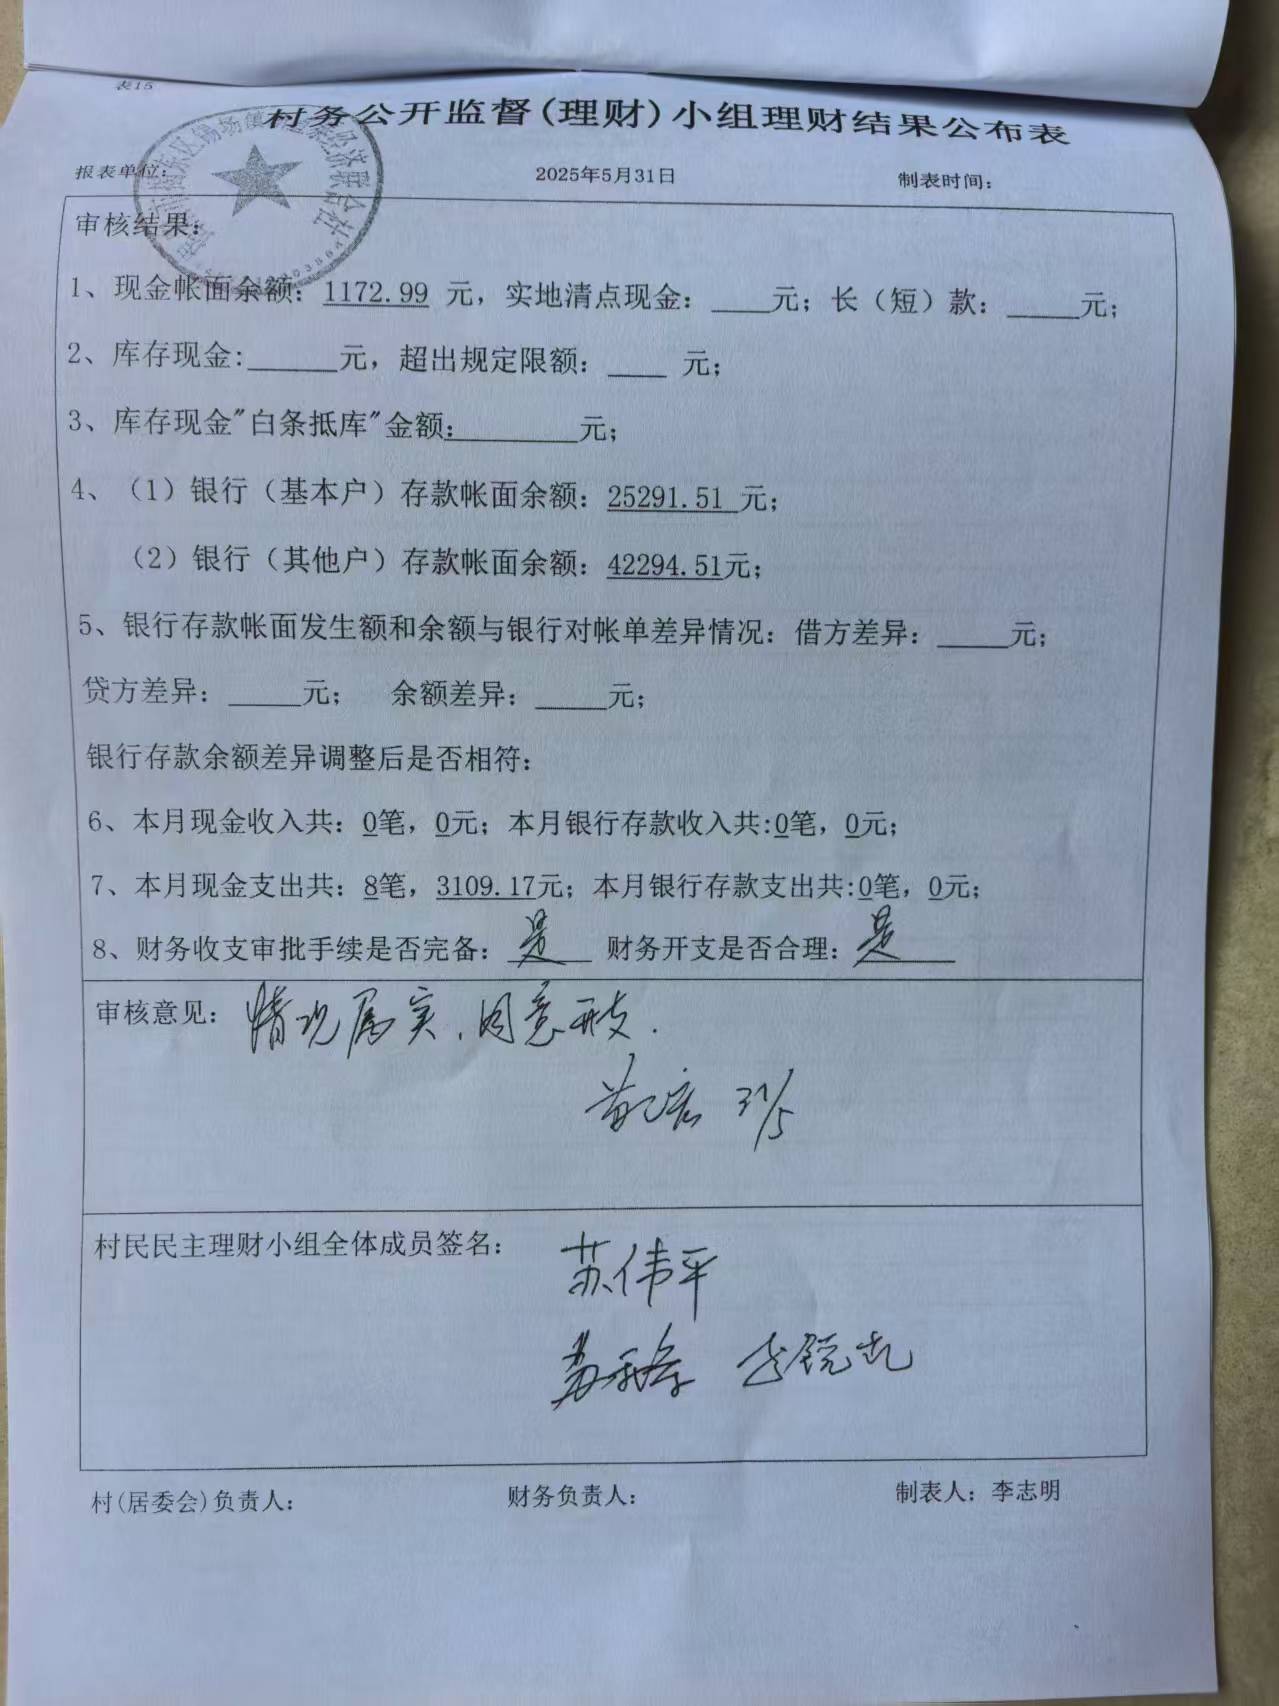 表15
村务公开监督(理财)小组理财结果公布表
报表单位:
2025年5月31日
制表时间:
审核结果:
1、现金帐面余额: 1172.99 元, 实地清点现金: ____元; 长（短）款: _____元;
2、库存现金:______元, 超出规定限额: ____ 元;
3、库存现金"白条抵库"金额:________元;
4、（1）银行（基本户）存款帐面余额: 25291.51 元;
（2）银行（其他户）存款帐面余额: 42294.51元;
5、银行存款帐面发生额和余额与银行对帐单差异情况: 借方差异: _____元;
贷方差异: _____元; 余额差异: _____元;
银行存款余额差异调整后是否相符:
6、本月现金收入共: 0笔, 0元; 本月银行存款收入共:0笔, 0元;
7、本月现金支出共: 8笔, 3109.17元; 本月银行存款支出共:0笔, 0元;
8、财务收支审批手续是否完备: 是 财务开支是否合理: 是
审核意见: 情况属实.同意开支.
31/5
村民民主理财小组全体成员签名:
苏伟平
李锐
村(居委会)负责人:
财务负责人:
制表人: 李志明